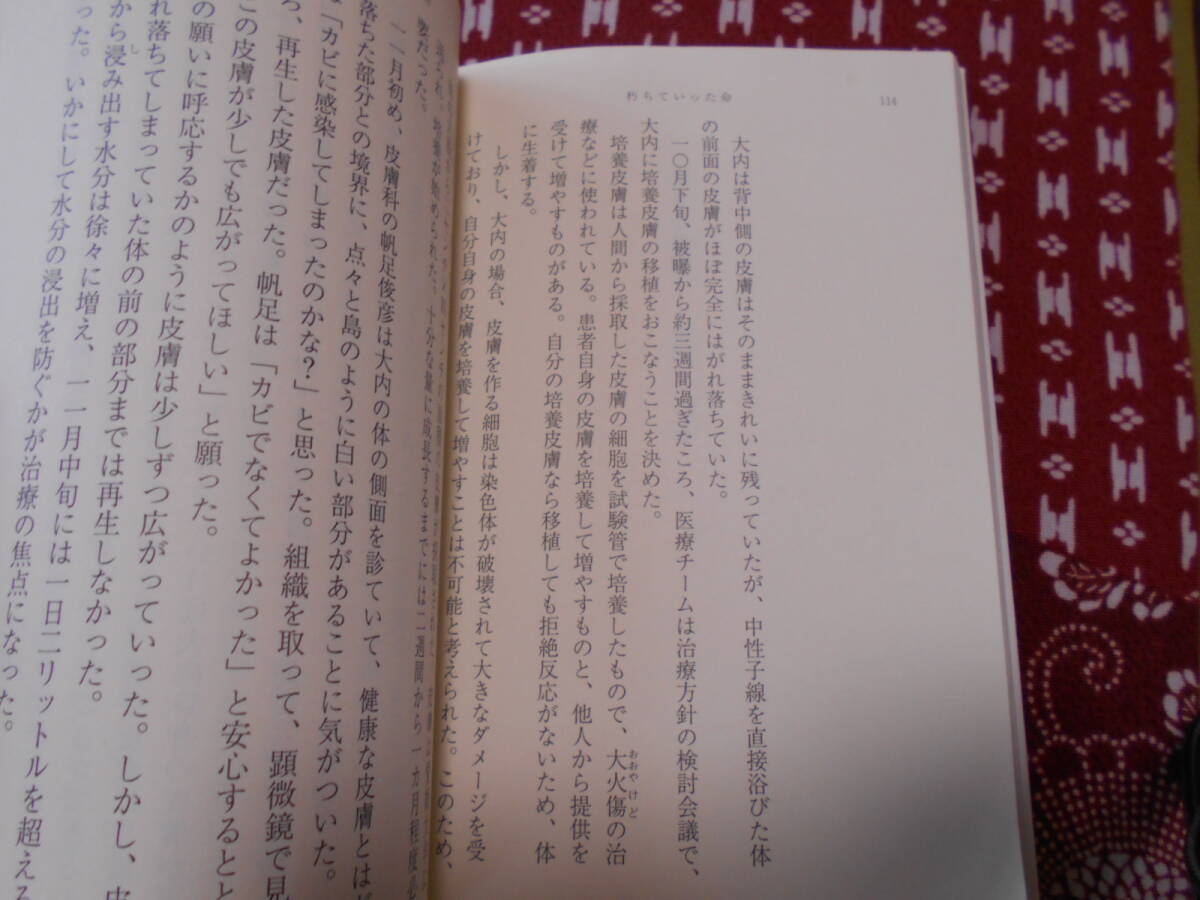 114
朽ちていった命
大内は背中側の皮膚はそのままきれいに残っていたが、中性子線を直接浴びた体
の前面の皮膚がほぼ完全にはがれ落ちていた。
一〇月下旬、被曝から約三週間過ぎたころ、医療チームは治療方針の検討会議で、
大内に培養皮膚の移植をおこなうことを決めた。
培養皮膚は人間から採取した皮膚の細胞を試験管で培養したもので、大火傷の治
おおやけど
療などに使われている。患者自身の皮膚を培養して増やすものと、他人から提供を
受けて増やすものがある。自分の培養皮膚なら移植しても拒絶反応がないため、体
に生着する。
しかし、大内の場合、皮膚を作る細胞は染色体が破壊されて大きなダメージを受
けており、自分自身の皮膚を培養して増やすことは不可能と考えられた。このため、
始められた。十分な量に成長するまでには二週間から一カ月程度
要だった。
一一月初め、皮膚科の帆足俊彦は大内の体の側面を診ていて、健康な皮膚とは
落ちた部分との境界に、点々と島のように白い部分があることに気がついた。
「カビに感染してしまったのかな?」と思った。組織を取って、顕微鏡で見
ろ、再生した皮膚だった。帆足は「カビでなくてよかった」と安心すると
この皮膚が少しでも広がってほしい」と願った。
の願いに呼応するかのように皮膚は少しずつ広がっていった。しかし、
れ落ちてしまっていた体の前の部分までは再生しなかった。
から浸み出す水分は徐々に増え、一一月中旬には一日二リットルを超える
し
った。いかにして水分の浸出を防ぐかが治療の焦点になった。